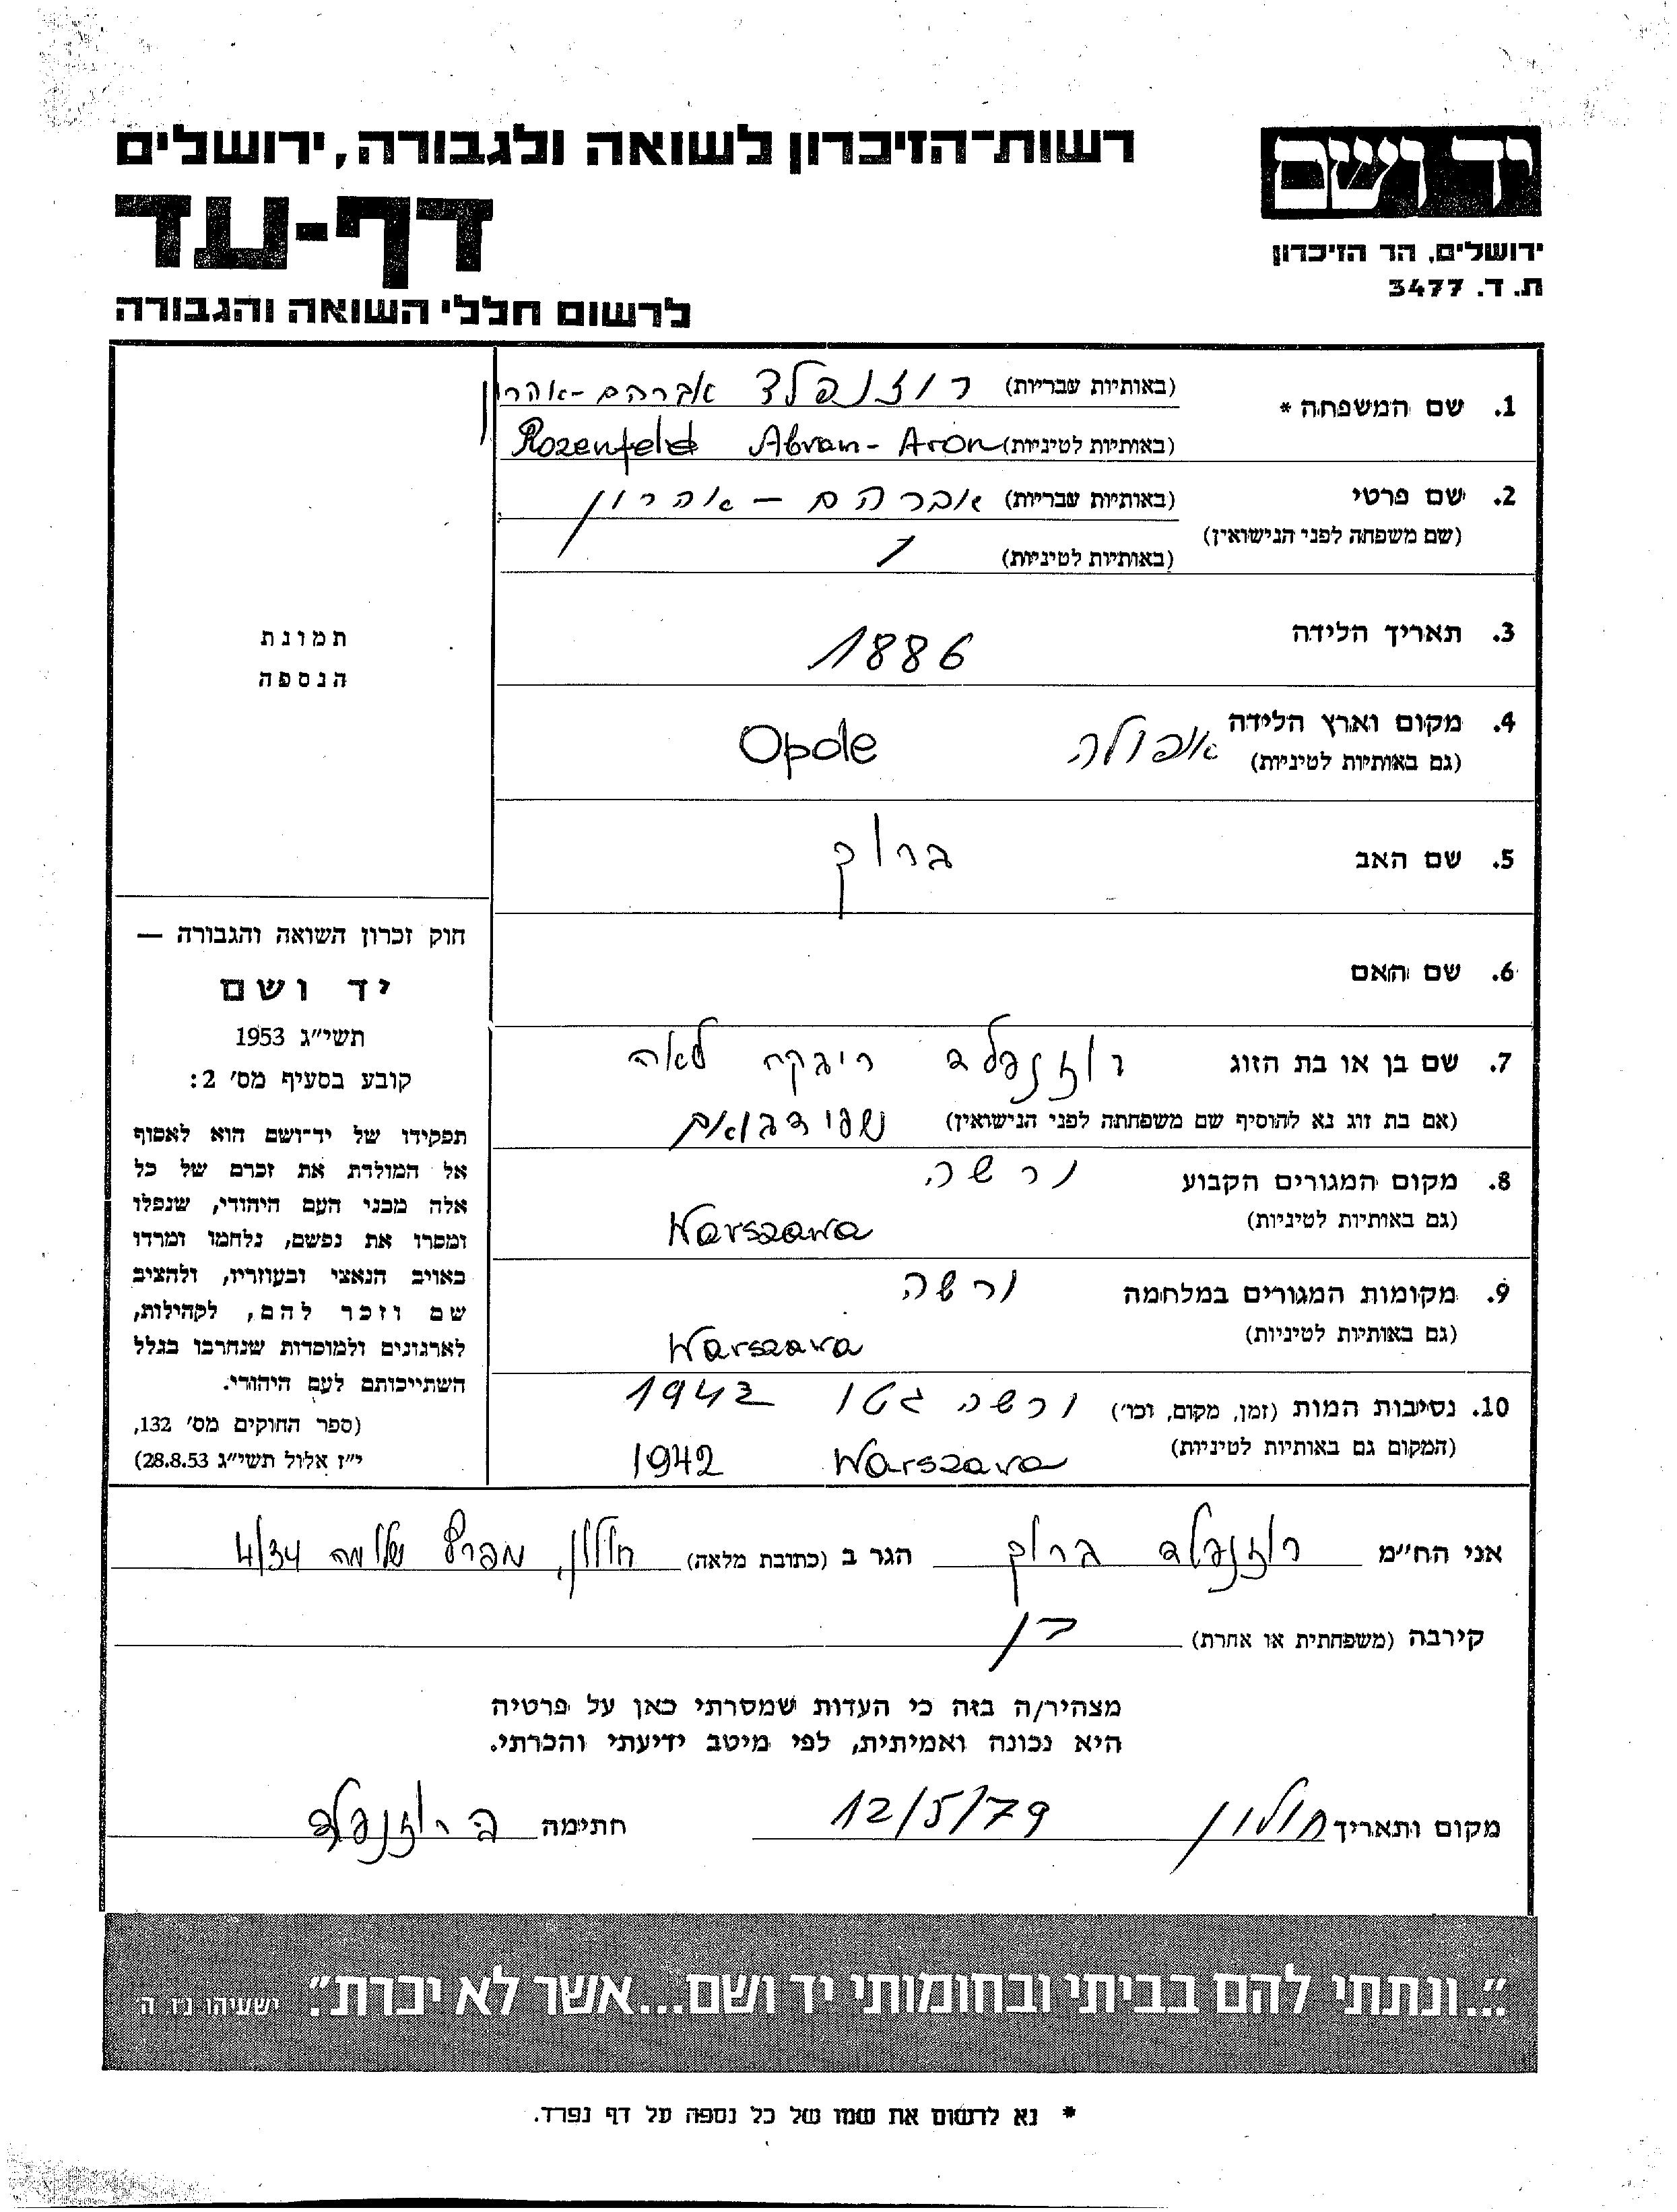 רשות-הזיכרון לשואה ולגבורה, ירושלים
יד ושם
דף-עד
ירושלים, הר הזיכרון
ת. ד. 3477
לרשום חללי השואה והגבורה
1. שם המשפחה * (באותיות עבריות) רוזנפלד אברהם-אהרון
(באותיות לטיניות) Rozenfeld Abram-Aron
2. שם פרטי (באותיות עבריות) אברהם - אהרון
(שם משפחה לפני הנישואין)
(באותיות לטיניות)
3. תאריך הלידה 1886
4. מקום וארץ הלידה אופולה Opole
(גם באותיות לטיניות)
5. שם האב ברוך
6. שם האם
7. שם בן או בת הזוג רוזנפלד ריבקה לאה
(אם בת זוג נא להוסיף שם משפחתה לפני הנישואין)
8. מקום המגורים הקבוע ורשה
(גם באותיות לטיניות) Warszawa
9. מקומות המגורים במלחמה ורשה
(גם באותיות לטיניות) Warszawa
10. נסיבות המות (זמן, מקום, וכו') ורשה גטו 1942
(המקום גם באותיות לטיניות) Warszawa 1942
תמונת
הנספה
חוק זכרון השואה והגבורה —
יד ושם
תשי"ג 1953
קובע בסעיף מס' 2:
תפקידו של יד-ושם הוא לאסוף
אל המולדת את זכרם של כל
אלה מבני העם היהודי, שנפלו
ומסרו את נפשם, נלחמו ומרדו
באויב הנאצי ובעוזריו, ולהציב
שם וזכר להם, לקהילות,
לארגונים ולמוסדות שנחרבו בגלל
השתייכותם לעם היהודי.
(ספר החוקים מס' 132,
י"ז אלול תשי"ג 28.8.53)
אני הח"מ רוזנפלד ברוך הגר ב (כתובת מלאה) חולון, מפרץ שלמה 4/34
קירבה (משפחתית או אחרת) בן
מצהיר/ה בזה כי העדות שמסרתי כאן על פרטיה
היא נכונה ואמיתית, לפי מיטב ידיעתי והכרתי.
מקום ותאריך חולון 12/5/79 חתימה ב רוזנפלד
"...ונתתי להם בביתי ובחומותי יד ושם...אשר לא יכרת". ישעיהו נו ה
* נא לרשום את שמו של כל נספה על דף נפרד.